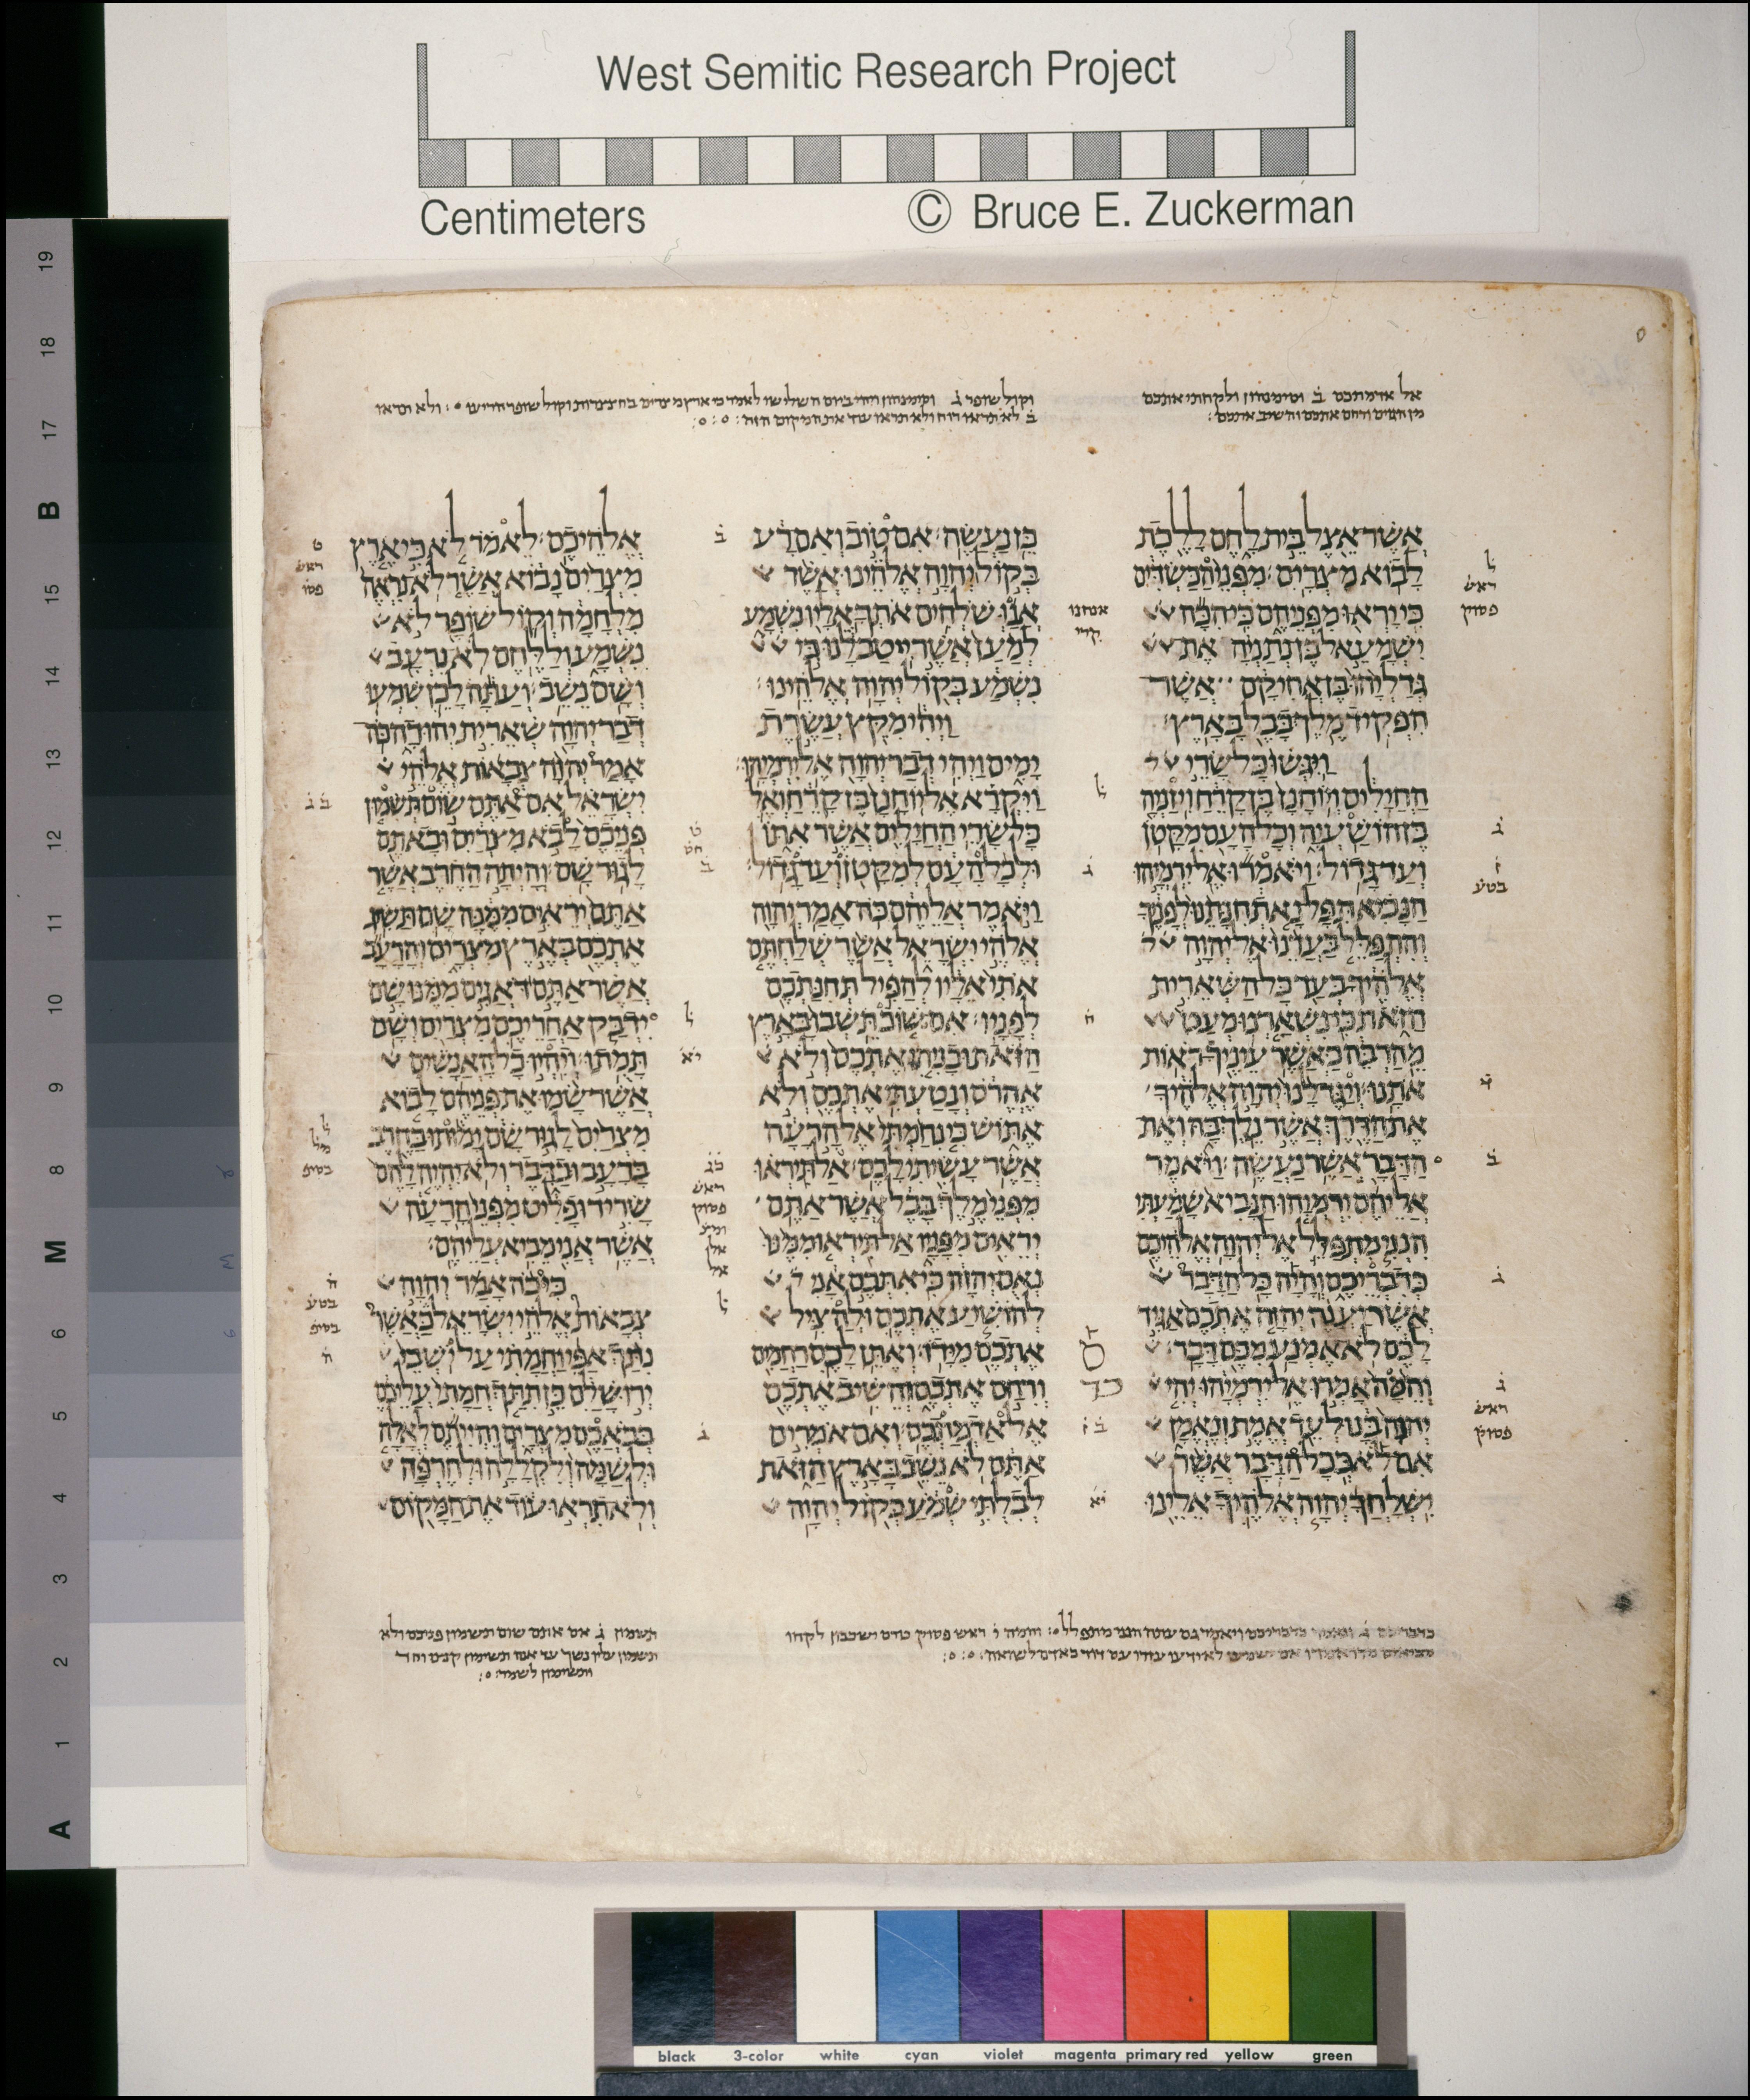 West Semitic Research Project
Centimeters © Bruce E. Zuckerman
אל אדמתכם ב וסימנהון ולקחתי אתכם
מן הגוים ורחם אתכם והשיב אתכם
וקול שופר ג וסימנהון ויהי ביום השלישי לאמר כי ארץ מצרים בחצצרות וקול שופר הריעו ולא תראו
ב לא תראו רוח ולא תראו עוד את המקום הזה
אֲשֶׁר אֵצֶל בֵּית לָחֶם לָלֶכֶת
לָבוֹא מִצְרָיִם׃ מִפְּנֵי הַכַּשְׂדִּים
כִּי יָרְאוּ מִפְּנֵיהֶם כִּי הִכָּה
יִשְׁמָעֵאל בֶּן נְתַנְיָה אֶת
גְּדַלְיָהוּ בֶּן אֲחִיקָם אֲשֶׁר
הִפְקִיד מֶלֶךְ בָּבֶל בָּאָרֶץ׃
וַיִּגְּשׁוּ כָּל שָׂרֵי
הַחֲיָלִים וְיוֹחָנָן בֶּן קָרֵחַ וִיזַנְיָה
בֶּן הוֹשַׁעְיָה וְכָל הָעָם מִקָּטֹן
וְעַד גָּדוֹל׃ וַיֹּאמְרוּ אֶל יִרְמְיָהוּ
הַנָּבִיא תִּפָּל נָא תְחִנָּתֵנוּ לְפָנֶיךָ
וְהִתְפַּלֵּל בַּעֲדֵנוּ אֶל יְהוָה
אֱלֹהֶיךָ בְּעַד כָּל הַשְּׁאֵרִית
הַזֹּאת כִּי נִשְׁאַרְנוּ מְעַט
מֵהַרְבֵּה כַּאֲשֶׁר עֵינֶיךָ רֹאוֹת
אֹתָנוּ׃ וְיַגֶּד לָנוּ יְהוָה אֱלֹהֶיךָ
אֶת הַדֶּרֶךְ אֲשֶׁר נֵלֶךְ בָּהּ וְאֶת
הַדָּבָר אֲשֶׁר נַעֲשֶׂה׃ וַיֹּאמֶר
אֲלֵיהֶם יִרְמְיָהוּ הַנָּבִיא שָׁמַעְתִּי
הִנְנִי מִתְפַּלֵּל אֶל יְהוָה אֱלֹהֵיכֶם
כְּדִבְרֵיכֶם וְהָיָה כָּל הַדָּבָר
אֲשֶׁר יַעֲנֶה יְהוָה אֶתְכֶם אַגִּיד
לָכֶם לֹא אֶמְנַע מִכֶּם דָּבָר׃
וְהֵמָּה אָמְרוּ אֶל יִרְמְיָהוּ יְהִי
יְהוָה בָּנוּ לְעֵד אֱמֶת וְנֶאֱמָן
אִם לֹא כְּכָל הַדָּבָר אֲשֶׁר
יִשְׁלָחֲךָ יְהוָה אֱלֹהֶיךָ אֵלֵינוּ
כֵּן נַעֲשֶׂה׃ אִם טוֹב וְאִם רָע
בְּקוֹל יְהוָה אֱלֹהֵינוּ אֲשֶׁר
אֲנוּ שֹׁלְחִים אֹתְךָ אֵלָיו נִשְׁמָע
לְמַעַן אֲשֶׁר יִיטַב לָנוּ כִּי
נִשְׁמַע בְּקוֹל יְהוָה אֱלֹהֵינוּ׃
וַיְהִי מִקֵּץ עֲשֶׂרֶת
יָמִים וַיְהִי דְבַר יְהוָה אֶל יִרְמְיָהוּ׃
וַיִּקְרָא אֶל יוֹחָנָן בֶּן קָרֵחַ וְאֶל
כָּל שָׂרֵי הַחֲיָלִים אֲשֶׁר אִתּוֹ
וּלְכָל הָעָם לְמִקָּטֹן וְעַד גָּדוֹל׃
וַיֹּאמֶר אֲלֵיהֶם כֹּה אָמַר יְהוָה
אֱלֹהֵי יִשְׂרָאֵל אֲשֶׁר שְׁלַחְתֶּם
אֹתִי אֵלָיו לְהַפִּיל תְּחִנַּתְכֶם
לְפָנָיו׃ אִם שׁוֹב תֵּשְׁבוּ בָּאָרֶץ
הַזֹּאת וּבָנִיתִי אֶתְכֶם וְלֹא
אֶהֱרֹס וְנָטַעְתִּי אֶתְכֶם וְלֹא
אֶתּוֹשׁ כִּי נִחַמְתִּי אֶל הָרָעָה
אֲשֶׁר עָשִׂיתִי לָכֶם׃ אַל תִּירְאוּ
מִפְּנֵי מֶלֶךְ בָּבֶל אֲשֶׁר אַתֶּם
יְרֵאִים מִפָּנָיו אַל תִּירְאוּ מִמֶּנּוּ
נְאֻם יְהוָה כִּי אִתְּכֶם אָנִי
לְהוֹשִׁיעַ אֶתְכֶם וּלְהַצִּיל
אֶתְכֶם מִיָּדוֹ׃ וְאֶתֵּן לָכֶם רַחֲמִים
וְרִחַם אֶתְכֶם וְהֵשִׁיב אֶתְכֶם
אֶל אַדְמַתְכֶם׃ וְאִם אֹמְרִים
אַתֶּם לֹא נֵשֵׁב בָּאָרֶץ הַזֹּאת
לְבִלְתִּי שְׁמֹעַ בְּקוֹל יְהוָה
אֱלֹהֵיכֶם׃ לֵאמֹר לֹא כִּי אֶרֶץ
מִצְרַיִם נָבוֹא אֲשֶׁר לֹא נִרְאֶה
מִלְחָמָה וְקוֹל שׁוֹפָר לֹא
נִשְׁמָע וְלַלֶּחֶם לֹא נִרְעָב
וְשָׁם נֵשֵׁב׃ וְעַתָּה לָכֵן שִׁמְעוּ
דְבַר יְהוָה שְׁאֵרִית יְהוּדָה כֹּה
אָמַר יְהוָה צְבָאוֹת אֱלֹהֵי
יִשְׂרָאֵל אִם אַתֶּם שׂוֹם תְּשִׂמוּן
פְּנֵיכֶם לָבֹא מִצְרַיִם וּבָאתֶם
לָגוּר שָׁם׃ וְהָיְתָה הַחֶרֶב אֲשֶׁר
אַתֶּם יְרֵאִים מִמֶּנָּה שָׁם תַּשִּׂיג
אֶתְכֶם בְּאֶרֶץ מִצְרָיִם וְהָרָעָב
אֲשֶׁר אַתֶּם דֹּאֲגִים מִמֶּנּוּ שָׁם
יִדְבַּק אַחֲרֵיכֶם מִצְרַיִם וְשָׁם
תָּמֻתוּ׃ וְיִהְיוּ כָל הָאֲנָשִׁים
אֲשֶׁר שָׂמוּ אֶת פְּנֵיהֶם לָבוֹא
מִצְרַיִם לָגוּר שָׁם יָמוּתוּ בַּחֶרֶב
בָּרָעָב וּבַדָּבֶר וְלֹא יִהְיֶה לָהֶם
שָׂרִיד וּפָלִיט מִפְּנֵי הָרָעָה
אֲשֶׁר אֲנִי מֵבִיא עֲלֵיהֶם׃
כִּי כֹה אָמַר יְהוָה
צְבָאוֹת אֱלֹהֵי יִשְׂרָאֵל כַּאֲשֶׁר
נִתַּךְ אַפִּי וַחֲמָתִי עַל יֹשְׁבֵי
יְרוּשָׁלִַם כֵּן תִּתַּךְ חֲמָתִי עֲלֵיכֶם
בְּבֹאֲכֶם מִצְרָיִם וִהְיִיתֶם לְאָלָה
וּלְשַׁמָּה וְלִקְלָלָה וּלְחֶרְפָּה
וְלֹא תִרְאוּ עוֹד אֶת הַמָּקוֹם
ראש
פסוק
בטע
ראש
פסוק
אנחנו
קרי
כד
ראש
פסוק
ראש
פסו
בסיפ
בטע
בסיפ
תשימון ג אם אתם שום תשמון פניכם ולא
black 3-color white cyan violet magenta primary red yellow green
19
18
17
B
15
14
13
12
11
10
9
8
M
6
5
4
3
2
1
A